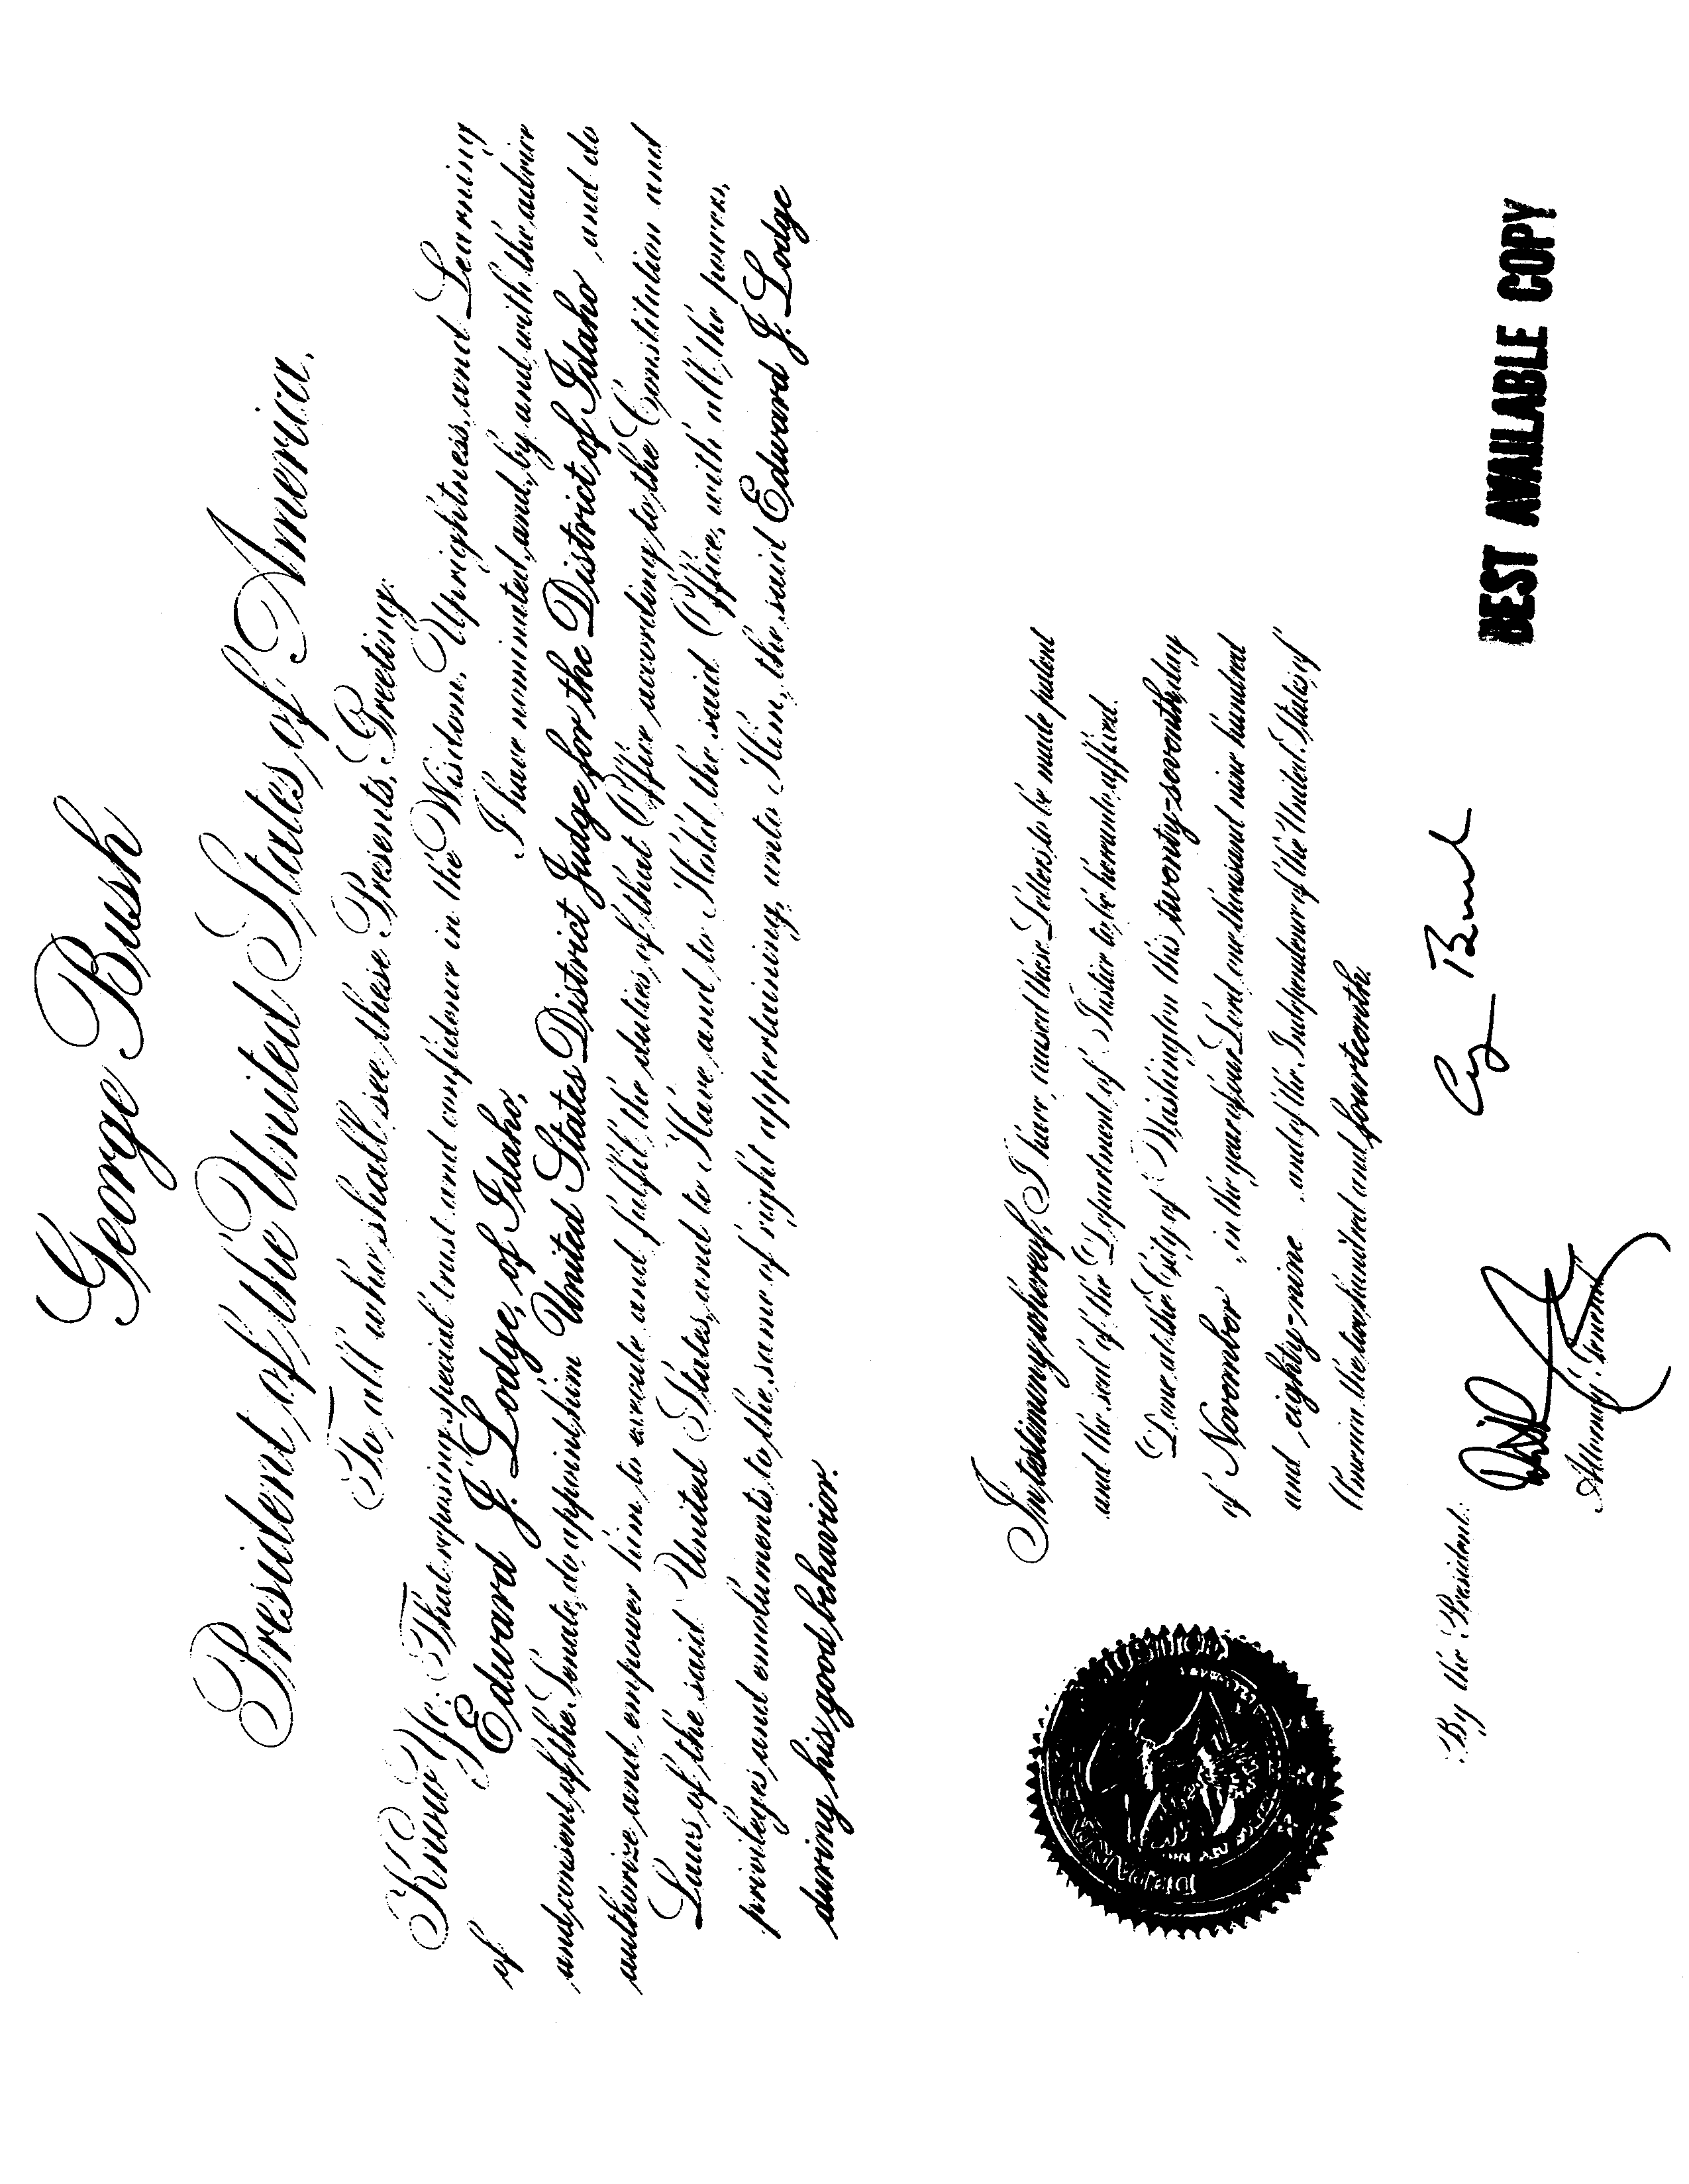 George Bush
President of the United States of America,
To all who shall see these Presents, Greeting:
Know Ye: That reposing special trust and confidence in the Wisdom, Uprightness, and Learning
of Edward J. Lodge, of Idaho, I have nominated, and, by and with the advice
and consent of the Senate, do appoint him United States District Judge for the District of Idaho and do
authorize and empower him to execute and fulfil the duties of that Office according to the Constitution and
Laws of the said United States, and to Have and to Hold the said Office, with all the powers,
privileges and emoluments to the same of right appertaining, unto Him, the said Edward J. Lodge
during his good behavior.
In testimony whereof, I have caused these Letters to be made patent
and the seal of the Department of Justice to be hereunto affixed.
Done at the City of Washington this twenty-seventh day
of November , in the year of our Lord one thousand nine hundred
and eighty-nine and of the Independence of the United States of
America the two hundred and fourteenth.
G Bush
By the President:
Attorney General
BEST AVAILABLE COPY